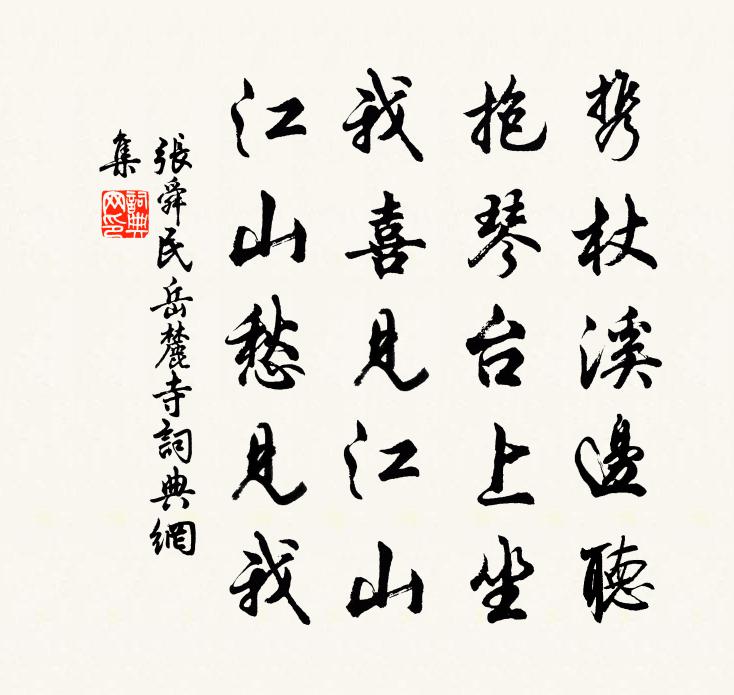 携杖溪邊聽
抱琴台上坐
我喜見江山
江山愁見我
張舜民岳麓寺詞典網
集
詞典
网印